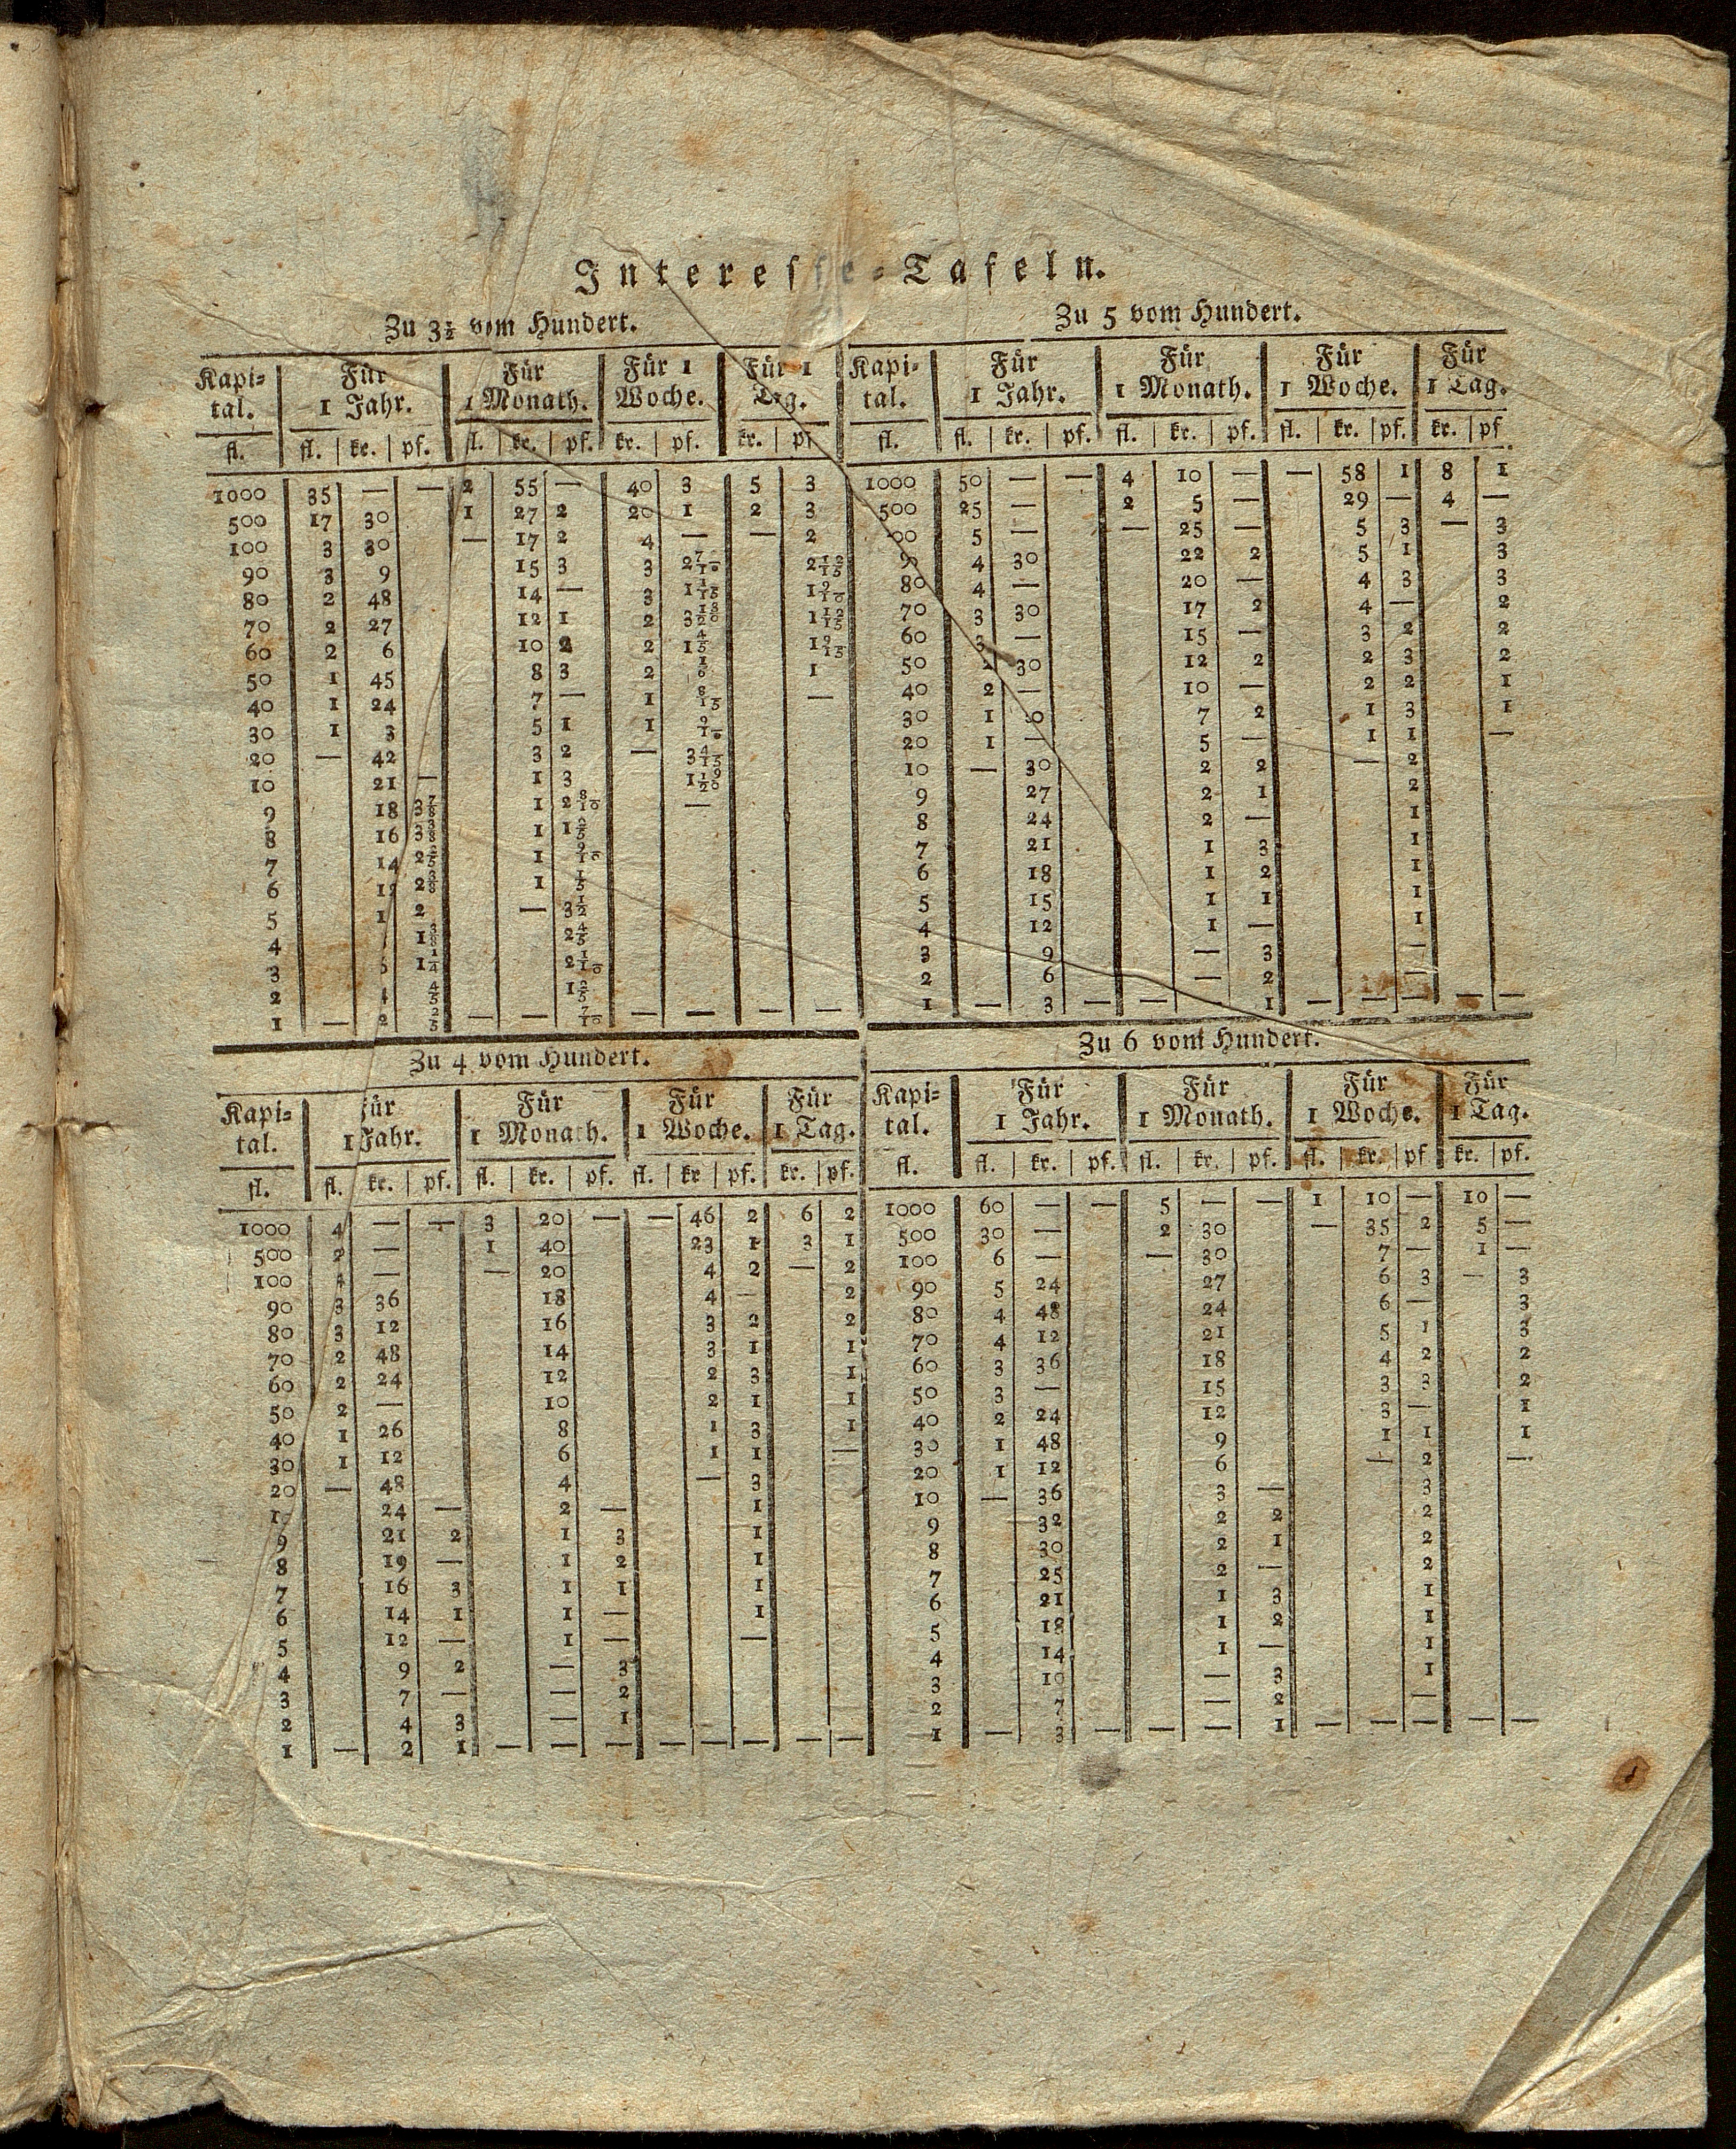 Interesse-Tafeln.
Zu 3½ vom Hundert.
Kapi- | Für | Für | Für 1 | Für 1
tal. | 1 Jahr. | 1 Monath. | Woche. | Tag.
fl. | fl. | kr. | pf. | fl. | kr. | pf. | kr. | pf. | kr. | pf
1000 | 35 | — | — | 2 | 55 | — | 40 | 3 | 5 | 3
500 | 17 | 30 | | 1 | 27 | 2 | 20 | 1 | 2 | 3
100 | 3 | 30 | | — | 17 | 2 | 4 | — | — | 2
90 | 3 | 9 | | | 15 | 3 | 3 | 2 7/10 | |
80 | 2 | 48 | | | 14 | — | 3 | | | 1 9/10
70 | 2 | 27 | | | 12 | 1 | 2 | | |
60 | 2 | 6 | | | 10 | 2 | 2 | 1 4/5 | |
50 | 1 | 45 | | | 8 | 3 | 2 | | | 1
40 | 1 | 24 | | | 7 | — | 1 | 8/15 | | —
30 | 1 | 3 | | | 5 | 1 | 1 | 9/10
20 | — | 42 | | | 3 | 2 | — | 3 4/15
10 | | 21 | — | | 1 | 3 | | 1 19/20
9 | | 18 | 3 7/8 | | 1 | 2 8/10 | | —
8 | | 16 | 3 3/8 | | 1 | 1 2/5
7 | | 14 | 2 2/5 | | 1 | 9/10
6 | | 12 | 2 3/8 | | 1 | 1/5
5 | | 1 | 2 | | — | 3 1/2
4 | | | 1 3/8 | | | 2 4/5
3 | | | 1 1/4 | | | 2 1/10
2 | | 4 | 4/5 | | | 1 2/5
1 | — | 2 | 2/5 | — | — | 7/10 | — | — | — | —
Zu 5 vom Hundert.
Kapi- | Für | Für | Für | Für
tal. | 1 Jahr. | 1 Monath. | 1 Woche. | 1 Tag.
fl. | fl. | kr. | pf. | fl. | kr. | pf. | fl. | kr. | pf. | kr. | pf
1000 | 50 | — | — | 4 | 10 | — | — | 58 | 1 | 8 | 1
500 | 25 | — | | 2 | 5 | — | | 29 | — | 4 | —
00 | 5 | — | | — | 25 | — | | 5 | 3 | — | 3
90 | 4 | 30 | | | 22 | 2 | | 5 | 1 | | 3
80 | 4 | — | | | 20 | — | | 4 | 3 | | 3
70 | 3 | 30 | | | 17 | 2 | | 4 | — | | 2
60 | 3 | — | | | 15 | — | | 3 | 2 | | 2
50 | 2 | 30 | | | 12 | 2 | | 2 | 3 | | 2
40 | 2 | — | | | 10 | — | | 2 | 2 | | 1
30 | 1 | 30 | | | 7 | 2 | | 1 | 3 | | 1
20 | 1 | — | | | 5 | — | | 1 | 1 | | —
10 | — | 30 | | | 2 | 2 | | — | 2
9 | | 27 | | | 2 | 1 | | | 2
8 | | 24 | | | 2 | — | | | 1
7 | | 21 | | | 1 | 3 | | | 1
6 | | 18 | | | 1 | 2 | | | 1
5 | | 15 | | | 1 | 1 | | | 1
4 | | 12 | | | 1 | — | | | 1
3 | | 9 | | | — | 3 | | | —
2 | | 6 | | | — | 2 | | | —
1 | — | 3 | — | — | — | 1 | — | — | — | — | —
Zu 4 vom Hundert.
Kapi- | für | Für | Für | Für
tal. | 1 Jahr. | 1 Monath. | 1 Woche. | 1 Tag.
fl. | fl. | kr. | pf. | fl. | kr. | pf. | fl. | kr | pf. | kr. | pf.
1000 | 4 | — | — | 3 | 20 | — | — | 46 | 2 | 6 | 2
500 | 2 | — | | 1 | 40 | | | 23 | 1 | 3 | 1
100 | 4 | — | | — | 20 | | | 4 | 2 | — | 2
90 | 3 | 36 | | | 18 | | | 4 | — | | 2
80 | 3 | 12 | | | 16 | | | 3 | 2 | | 2
70 | 2 | 48 | | | 14 | | | 3 | 1 | | 1
60 | 2 | 24 | | | 12 | | | 2 | 3 | | 1
50 | 2 | — | | | 10 | | | 2 | 1 | | 1
40 | 1 | 26 | | | 8 | | | 1 | 3 | | 1
30 | 1 | 12 | | | 6 | | | 1 | 1 | | —
20 | — | 48 | | | 4 | | | — | 3
10 | | 24 | — | | 2 | — | | | 1
9 | | 21 | 2 | | 1 | 3 | | | 1
8 | | 19 | — | | 1 | 2 | | | 1
7 | | 16 | 3 | | 1 | 1 | | | 1
6 | | 14 | 1 | | 1 | — | | | 1
5 | | 12 | — | | 1 | — | | | —
4 | | 9 | 2 | | — | 3
3 | | 7 | — | | — | 2
2 | | 4 | 3 | | — | 1
1 | — | 2 | 1 | — | — | — | — | — | — | — | —
Zu 6 vom Hundert.
Kapi- | Für | Für | Für | Für
tal. | 1 Jahr. | 1 Monath. | 1 Woche. | 1 Tag.
fl. | fl. | kr. | pf. | fl. | kr. | pf. | fl. | kr. | pf | kr. | pf.
1000 | 60 | — | — | 5 | — | — | 1 | 10 | — | 10 | —
500 | 30 | — | | 2 | 30 | | — | 35 | 2 | 5 | —
100 | 6 | — | | — | 30 | | | 7 | — | 1 | —
90 | 5 | 24 | | | 27 | | | 6 | 3 | — | 3
80 | 4 | 48 | | | 24 | | | 6 | — | | 3
70 | 4 | 12 | | | 21 | | | 5 | 1 | | 3
60 | 3 | 36 | | | 18 | | | 4 | 2 | | 2
50 | 3 | — | | | 15 | | | 3 | 3 | | 2
40 | 2 | 24 | | | 12 | | | 3 | — | | 1
30 | 1 | 48 | | | 9 | | | 1 | 1 | | 1
20 | 1 | 12 | | | 6 | | | — | 2 | | —
10 | — | 36 | | | 3 | — | | | 3
9 | | 32 | | | 2 | 2 | | | 2
8 | | 30 | | | 2 | 1 | | | 2
7 | | 25 | | | 2 | — | | | 2
6 | | 21 | | | 1 | 3 | | | 1
5 | | 18 | | | 1 | 2 | | | 1
4 | | 14 | | | 1 | — | | | 1
3 | | 10 | | | — | 3 | | | 1
2 | | 7 | | | — | 2 | | | —
1 | — | 3 | — | — | — | 1 | — | — | — | — | —